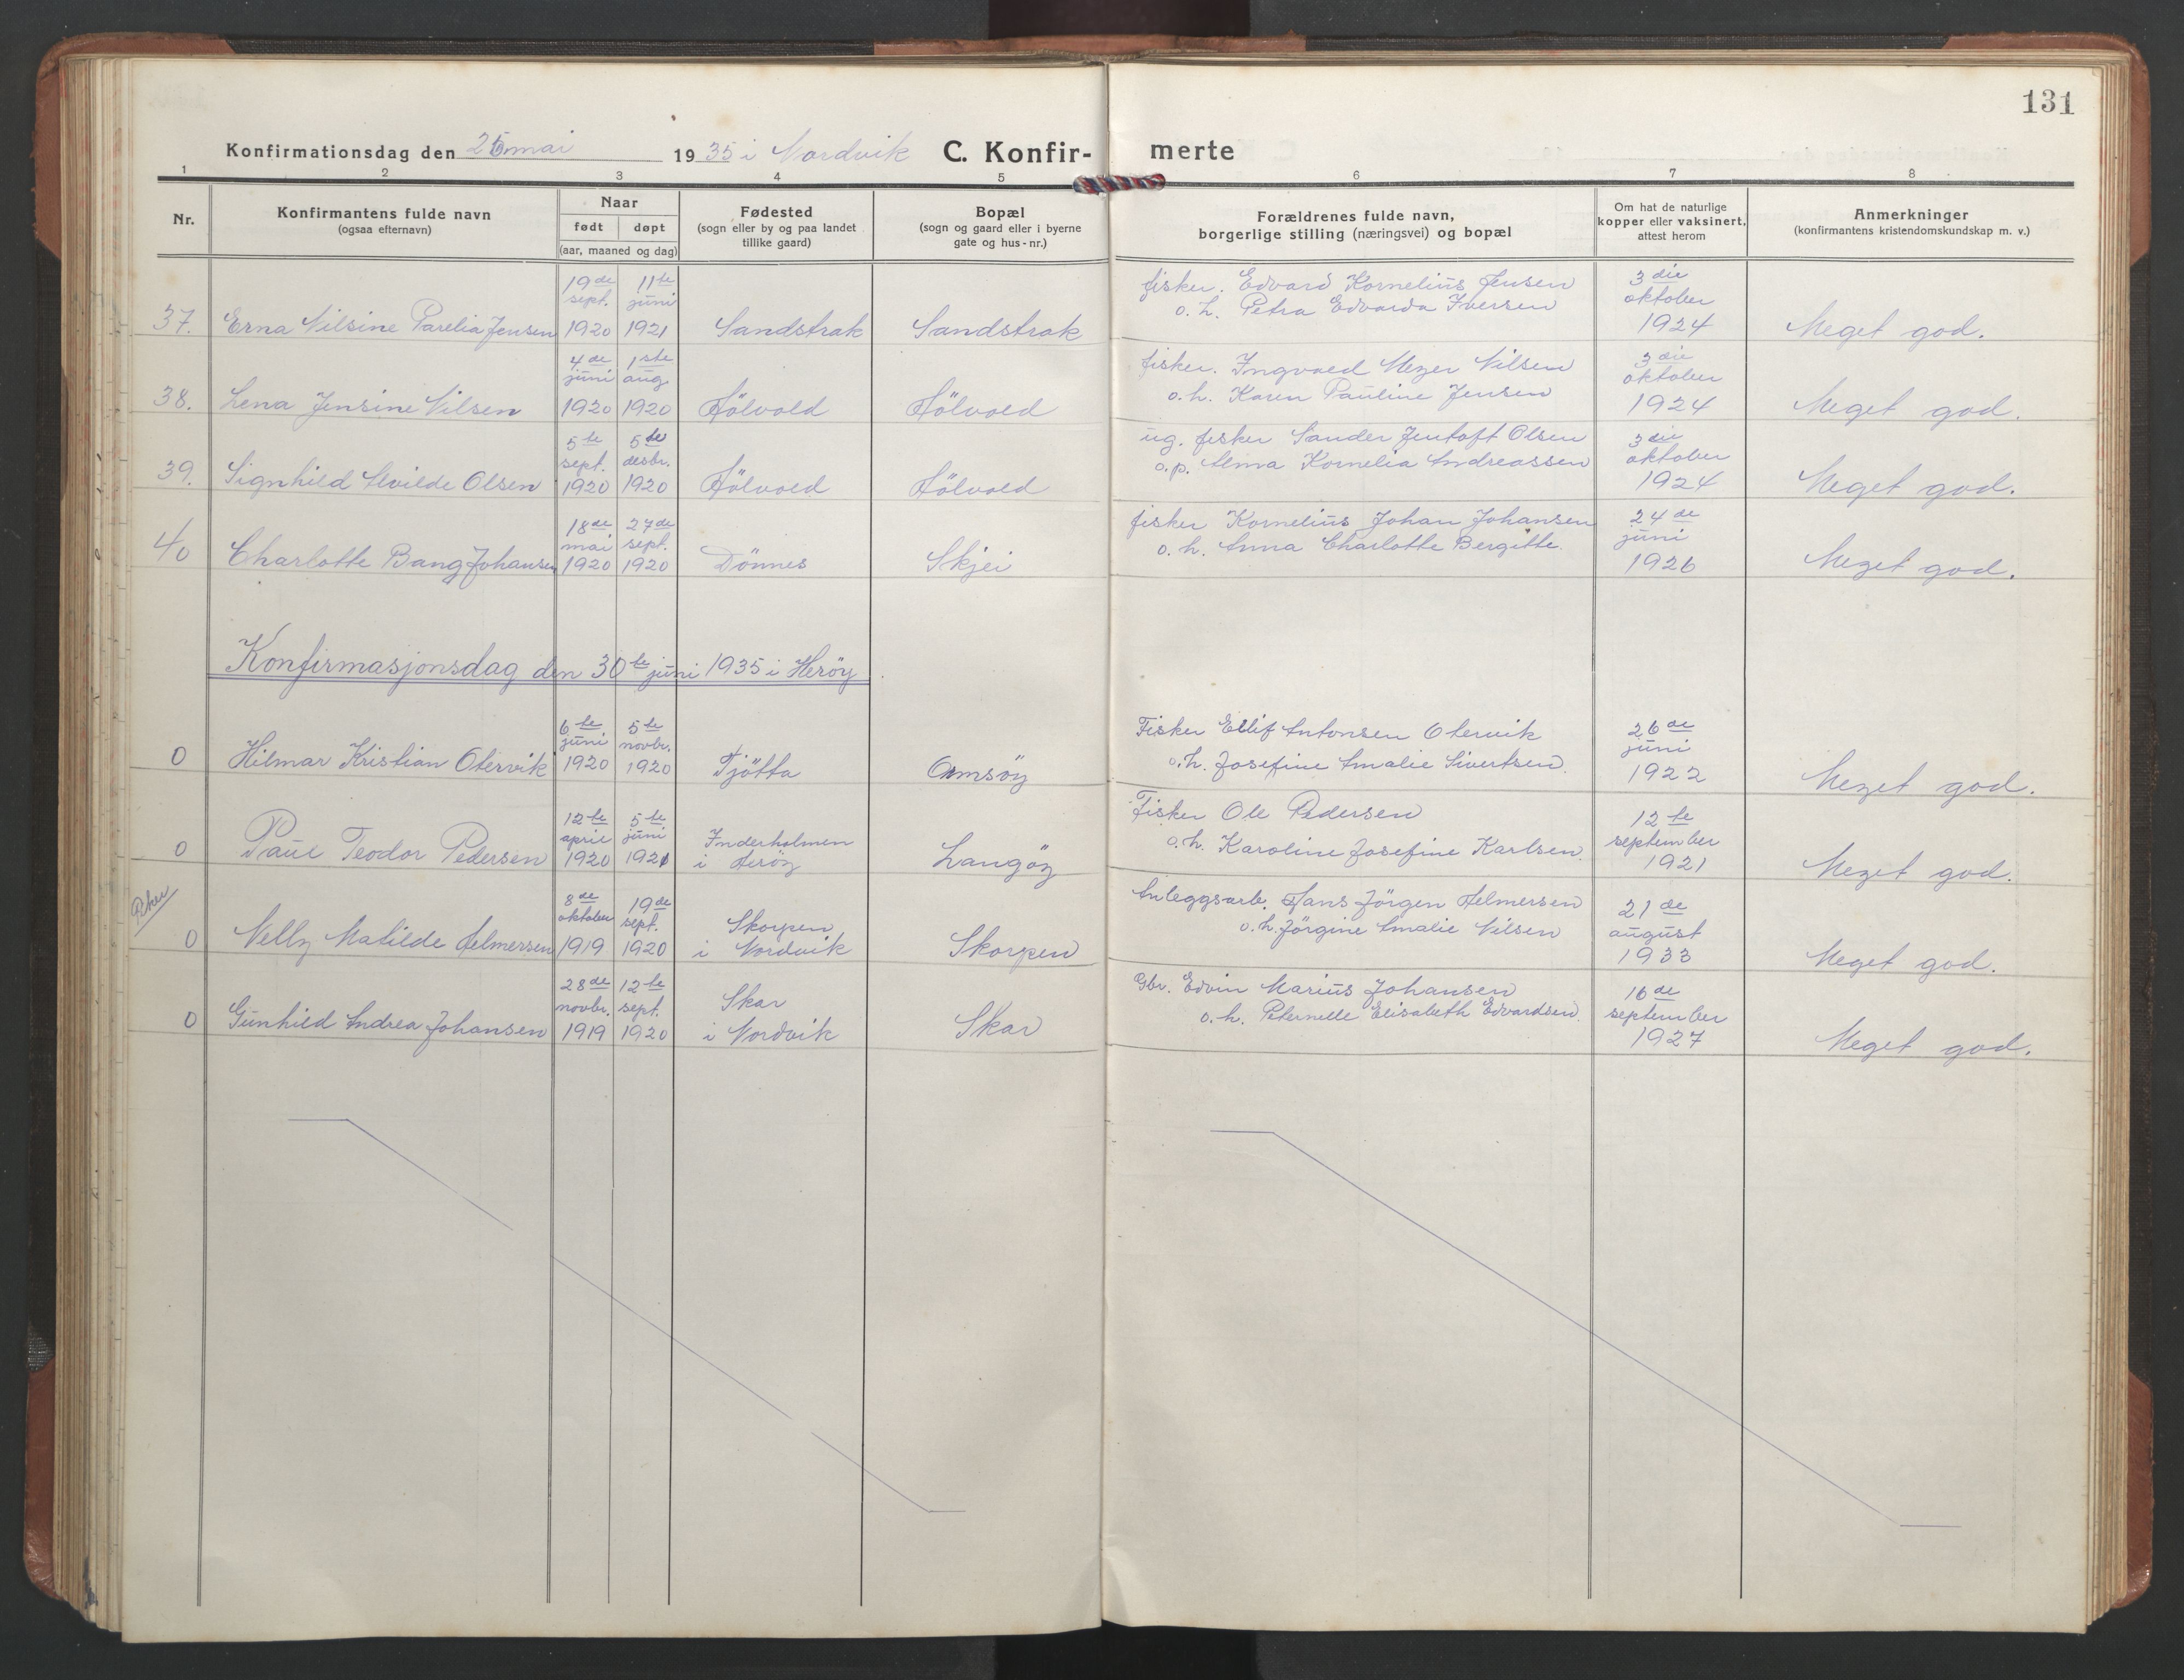 131
Konfirmationsdag den 26 mai 1935 i Nordvik C. Konfir- merte
1 2 3 4 5 6 7 8
Nr.
Konfirmantens fulde navn
(ogsaa efternavn)
Naar
født døpt
(aar, maaned og dag)
Fødested
(sogn eller by og paa landet
tillike gaard)
Bopæl
(sogn og gaard eller i byerne
gate og hus-nr.)
Forældrenes fulde navn,
borgerlige stilling (næringsvei) og bopæl
Om hat de naturlige
kopper eller vaksinert,
attest herom
Anmerkninger
(konfirmantens kristendomskundskap m. v.)
19de 11te fisker. Edvard Kornelius Jensen 3die
sept. juni o. h. Petra Edvarda Iversen oktober
37. Erna Nilsine Parelia Jensen 1920 1921 Sandstrak Sandstrak 1924 Meget god.
4de 1ste fisker. Ingvald Meyer Nilsen 3die
juni aug. o. h. Karen Pauline Jensen oktober
38. Lena Jensine Nilsen 1920 1920 Hölvold Hölvold 1924 Meget god.
5te 5te ug. fisker Sander Jentoft Olsen 3die
sept. desbr. o. p. Alma Kornelia Andreassen oktober
39. Signhild Alvilde Olsen 1920 1920 Hölvold Hölvold 1924 Meget god.
18de 27de fisker Kornelius Johan Johansen 24de
mai sept. o. h. Anna Charlotte Bergitte. juni
40 Charlotte Bang Johansen 1920 1920 Dönnes Skjei 1926 Meget god.
Konfirmasjonsdag den 30te juni 1935 i Heröy
6te 5te Fisker Ellif Antonsen Otervik 26de
juni novbr. o. h. Josefine Amalie Sivertsen. juni
0 Hilmar Kristian Otervik 1920 1920 Tjötta Omsöy 1922 Meget god.
12te 5te Fisker Ole Pedersen 12te
april juni Inderholmen o. h. Karoline Josefine Karlsen. september
0 Paul Teodor Pedersen 1920 1921 i Heröy Langöy 1921 Meget god.
8de 19de Anleggsarb. Hans Jörgen Helmersen 21de
oktober sept. Skorpen o. h. Jörgine Amalie Nilsen august
0 Nelly Matilde Helmersen 1919 1920 i Nordvik Skorpen 1933 Meget god.
28de 12te Gbr. Edvin Marius Johansen 16de
novbr. sept. Skar o. h. Peternelle Elisabeth Edvardsen. september
0 Gunhild Andrea Johansen 1919 1920 i Nordvik Skar 1927 Meget god.